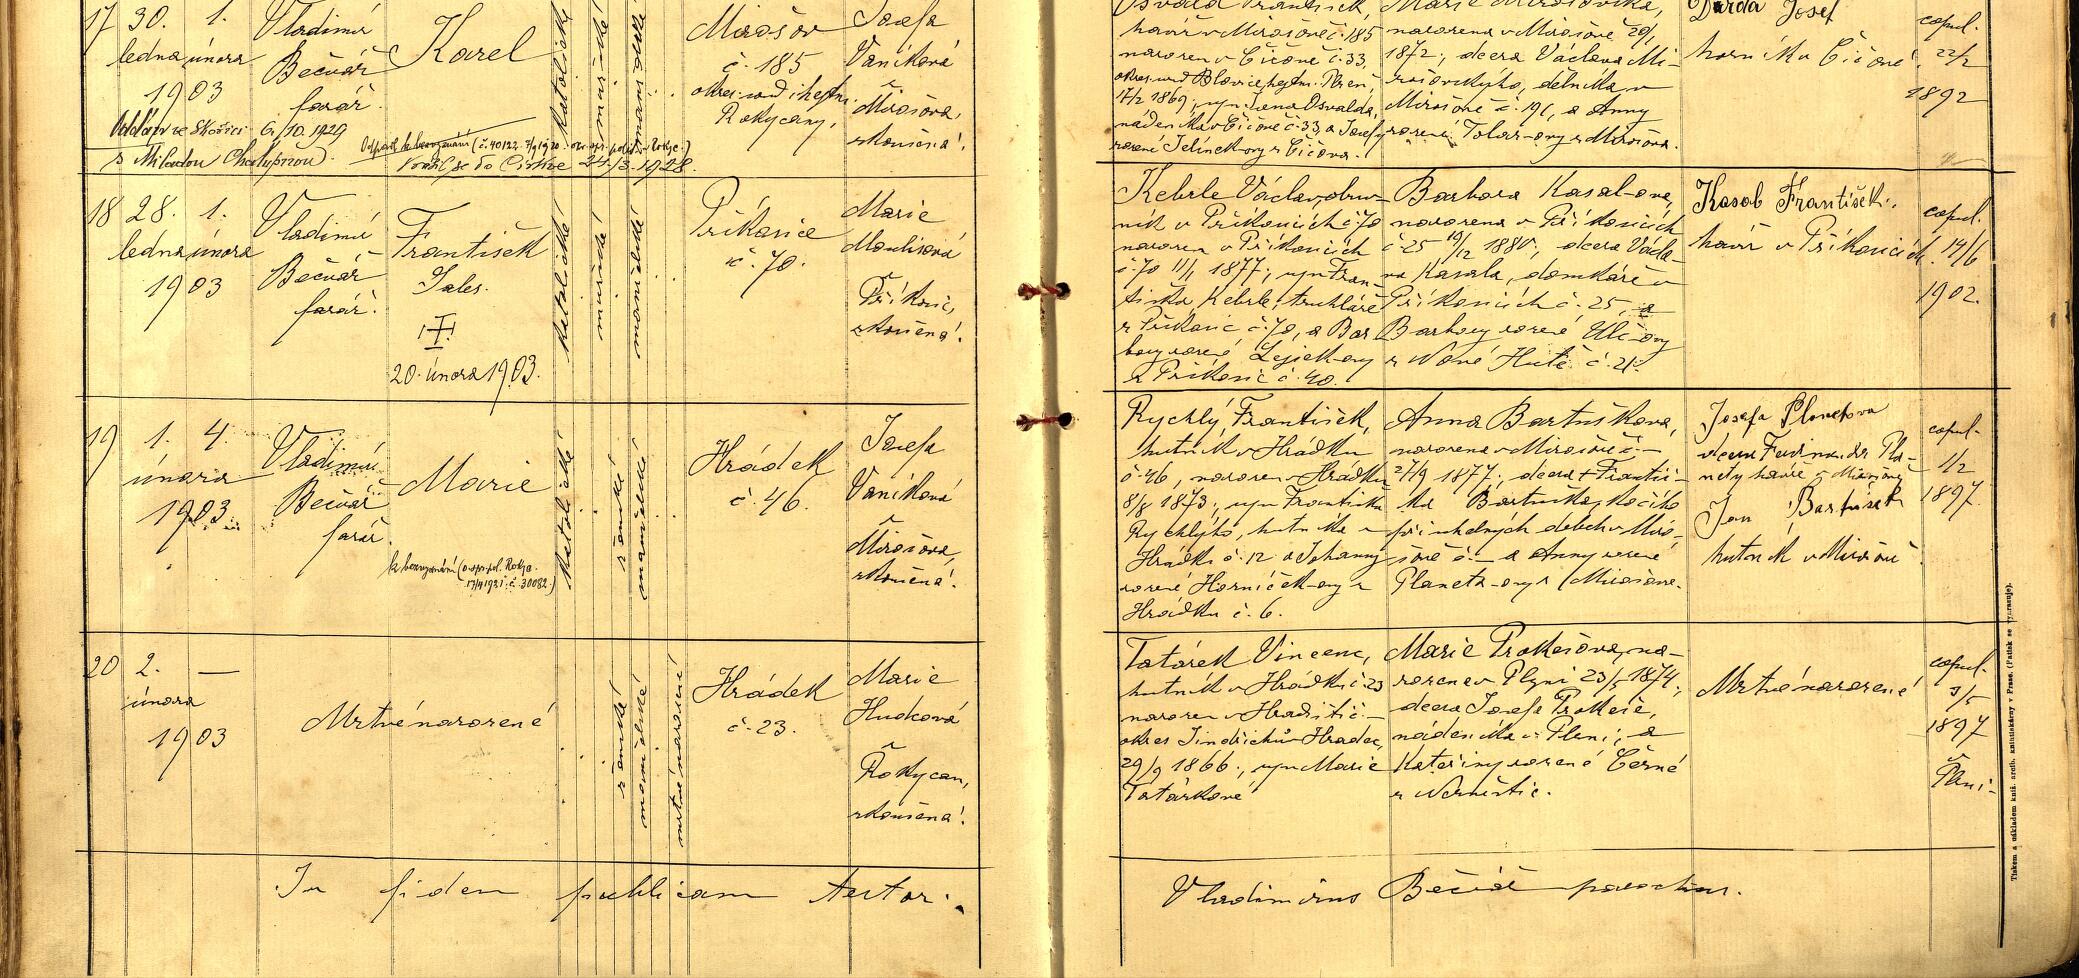 17 30. 1.
ledna února
1903
Vladimír
Bečvář
farář.
Karel
katolické
mužské
manželské
Mirošov
č. 185
okres. soud i hejtm.
Rokycany,
Josefa
Vaníková
z Mirošova,
zkoušená!
Oddán ve Skořici 6/10.1929
s Miladou Chalupnou.
Odpadl k bezvyznání (č. 40122 7/9 1920 okr. spr. polit. v Rokyc.)
vrátil se do Církve 24/3. 1928.
Osvald František,
havíř v Mirošově č. 185
narozen v Čičově č. 33
okres. soud Blovice, hejtm. Plzeň,
17/2 1869; syn Jana Osvalda,
nádeníka v Čičově č. 33, a Josefy
rozené Jelínek-ovy z Čičova.
Marie
narozena v Mirošově 29/1
1872; dcera Václava Mi-
rošovského, dělníka v
Mirošově č. 191, a Anny
rozené z Mirošova.
Darda Josef
horník v Čičově.
copul.
22/2
1892
18 28. 1.
ledna února
1903
Vladimír
Bečvář
farář.
František
Sales.
†
20. února 1903.
katolické
mužské
manželské
Příkosice
č. 70.
Marie
Moulisová
z Příkosic,
zkoušená!
Kebrle Václav, obuv-
ník v Příkosicích č. 70
narozen v Příkosicích
č. 70 11/1 1877; syn Fran-
tiška Kebrle, truhláře
z Příkosic č. 70, a Bar
bory rozené
z Příkosic č. 40.
Barbora Kasal-ova,
narozena v Příkosicích
č. 25 19/12 1880; dcera Václa-
va Kasala, domkáře v
Příkosicích č. 25, a
Barbory rozené Ulč-ovy
z Nové Hutě č. 21.
Kasal František.
havíř v Příkosicích.
copul.
14/6
1902.
19 1. 4.
února
1903
Vladimír
Bečvář
farář.
Marie
k bezvyznání (o. spr. pol. Rokyc.
17/4 1921. č. 30082.)
katolické
ženské
manželské
Hrádek
č. 46.
Josefa
Vaníková
z Mirošova,
zkoušená!
Rychlý František,
hutník v Hrádku
č. 46, narozen v Hrádku
8/8 1873; syn Františka
Rychlýho, hutníka v
Hrádku č. 12 a Johanny
rozené Horníček-ovy z
Hrádku č. 6.
Anna Bartušková,
narozena v Mirošově č. –
27/9 1877; dcera † Františ-
ka Bartuška, kočího
při uhelných dolech v Miro-
šově č. – a Anny rozené
Planeta-ovy z Mirošova.
Josefa Planetova
dcera Ferdinanda Pla-
nety havíře v Mirošově
Jan Bartušek
hutník v Mirošově.
copul.
1/2
1897.
20 2. —
února
1903
Mrtvě narozené
ženské
manželské
mrtvě narozené
Hrádek
č. 23.
Marie
Hudková
z Rokycan,
zkoušená!
Tatárek Vincenc,
hutník v Hrádku č. 23
narozen v Hradišti č. –
okres Jindřichův Hradec,
29/9 1866; syn Marie
Tatárkové
Marie Prokešova, na-
rozena v Plzni 23/5 1874;
dcera Josefa Prokeše,
nádeníka v Plzni, a
Kateřiny rozené Černé
z
Mrtvě narozené
copul.
3/5
1897
v Plzni.
In fidem publicam testor.
Vladimirus Bečvář parochus.
Tiskem a nákladem kníž. arcib. knihtiskárny v Praze. (Patisk se vyhrazuje).